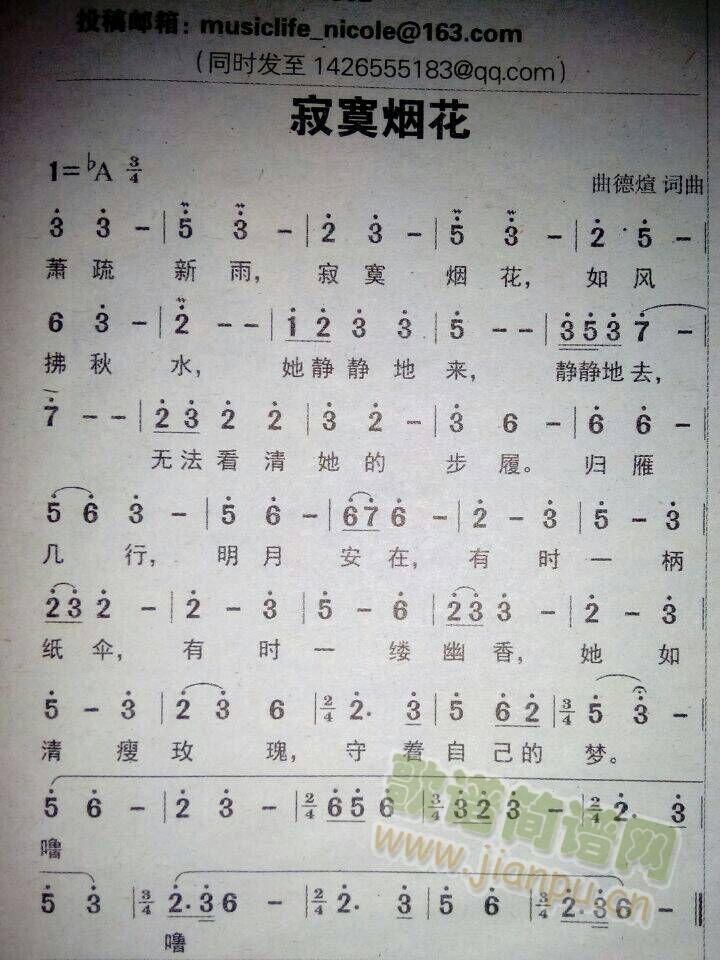 投稿邮箱：musiclife_nicole@163.com
（同时发至 1426555183@qq.com）
寂寞烟花
1=♭A 3/4
曲德煊 词曲
3 3 - | 5 3 - | 2 3 - | 5 3 - | 2 5 -
萧疏 新雨， 寂寞 烟花， 如风
6 3 - | 2 - - | 1 2 3 3 | 5 - - | 3 5 3 7 -
拂秋 水， 她静静地 来， 静静地去，
7 - - | 2 3 2 2 | 3 2 - | 3 6 - | 6 6 -
无法看清她的 步履。归雁
5 6 3 - | 5 6 - | 6 7 6 - | 2 - 3 | 5 - 3
几 行， 明月 安在， 有时一柄
2 3 2 - | 2 - 3 | 5 - 6 | 2 3 3 - | 2 - 3
纸伞， 有时一缕幽香， 她如
5 - 3 | 2 3 6 | 2/4 2. 3 | 5 6 2 | 3/4 5 3 -
清瘦玫瑰，守着自己的梦。
5 6 - | 2 3 - | 2/4 6 5 6 | 3/4 3 2 3 - | 2/4 2. 3
噜
5 3 | 3/4 2. 3 6 - | 2/4 2. 3 | 5 6 | 3/4 2. 3 6 -
噜
歌谱简谱网
www.jianpu.cn